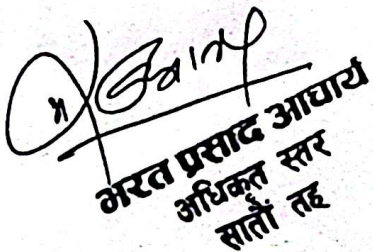 भरत प्रसाद आचार्य
अधिकृत स्तर
सातौं तह